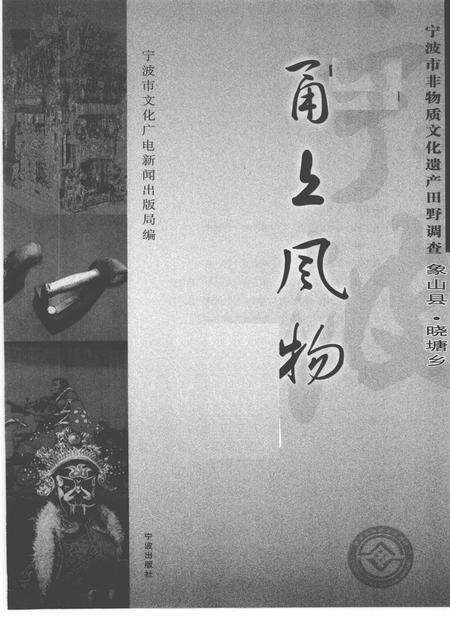 宁波市非物质文化遗产田野调查 象山县·晓塘乡
甬上风物
宁波市文化广电新闻出版局编
宁波出版社